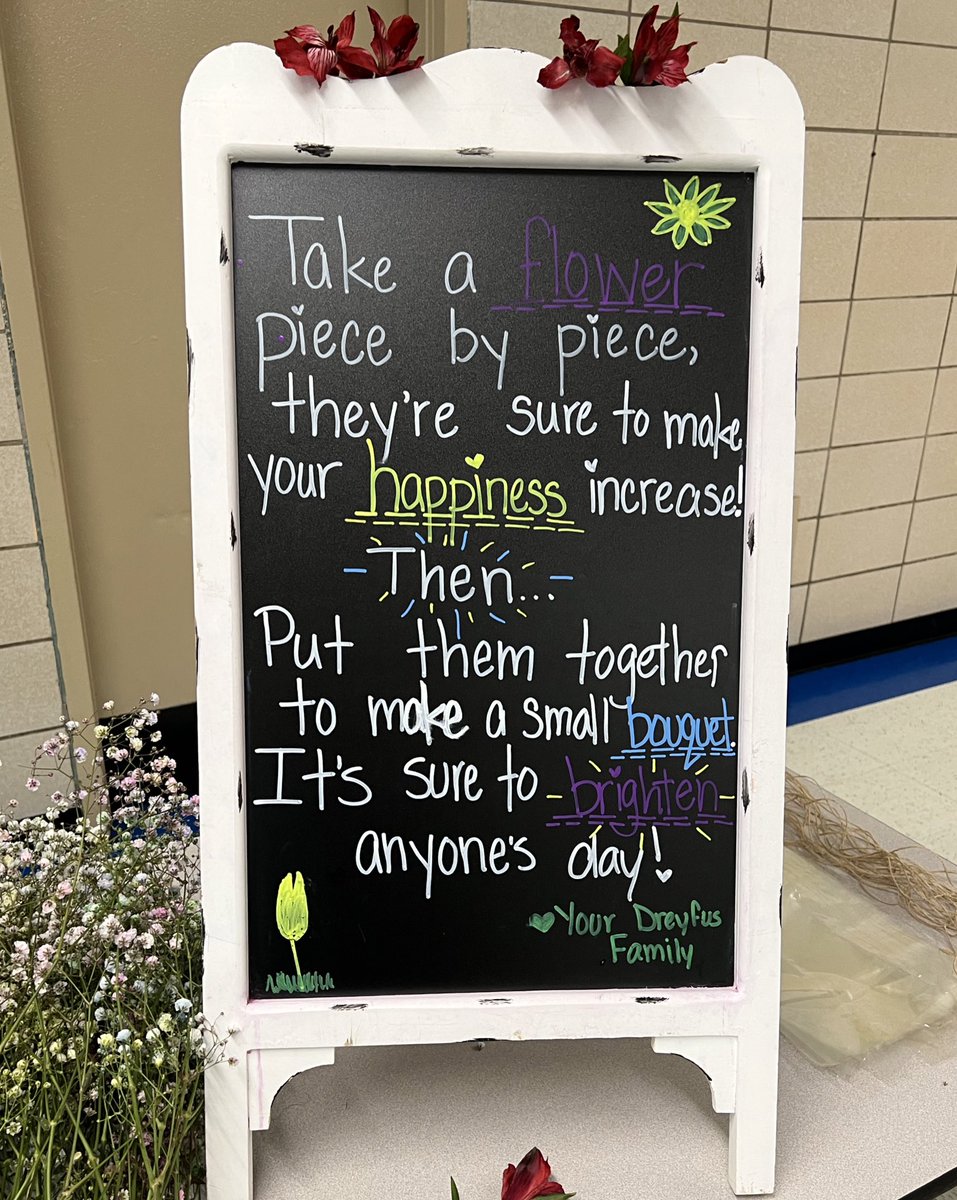 Take a flower
piece by piece,
they're sure to make
your happiness increase!
Then...
Put them together
to make a small bouquet.
It's sure to brighten
anyone's day!
Your Dreyfus
Family